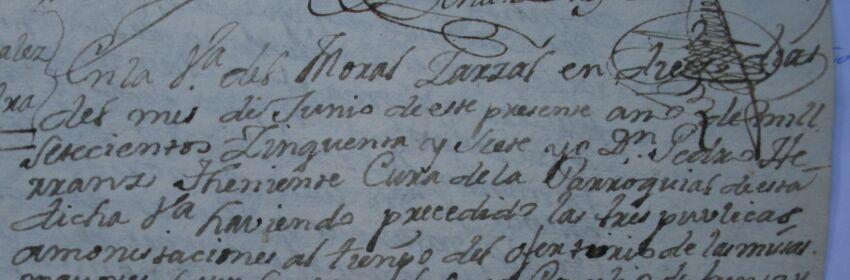 alez
En la Va. del Moral Zarzal en diez dias
ra
del mes de Junio de este presente año de mill
Setecientos Zinquenta y Siete yo Dn. Pedro He
rranz Theniente Cura de la Parroquial de esta
dicha Va haviendo precedido las tres puvlicas
amonestaciones al tiempo del ofertorio de las misas